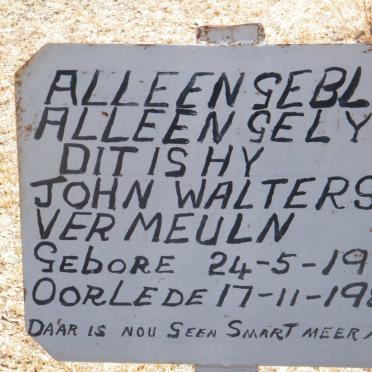 ALLEEN GEBL
ALLEEN GELY
DIT IS HY
JOHN WALTERS
VERMEULN
GEBORE 24-5-19
OORLEDE 17-11-19
DAAR IS NOU GEEN SMART MEER